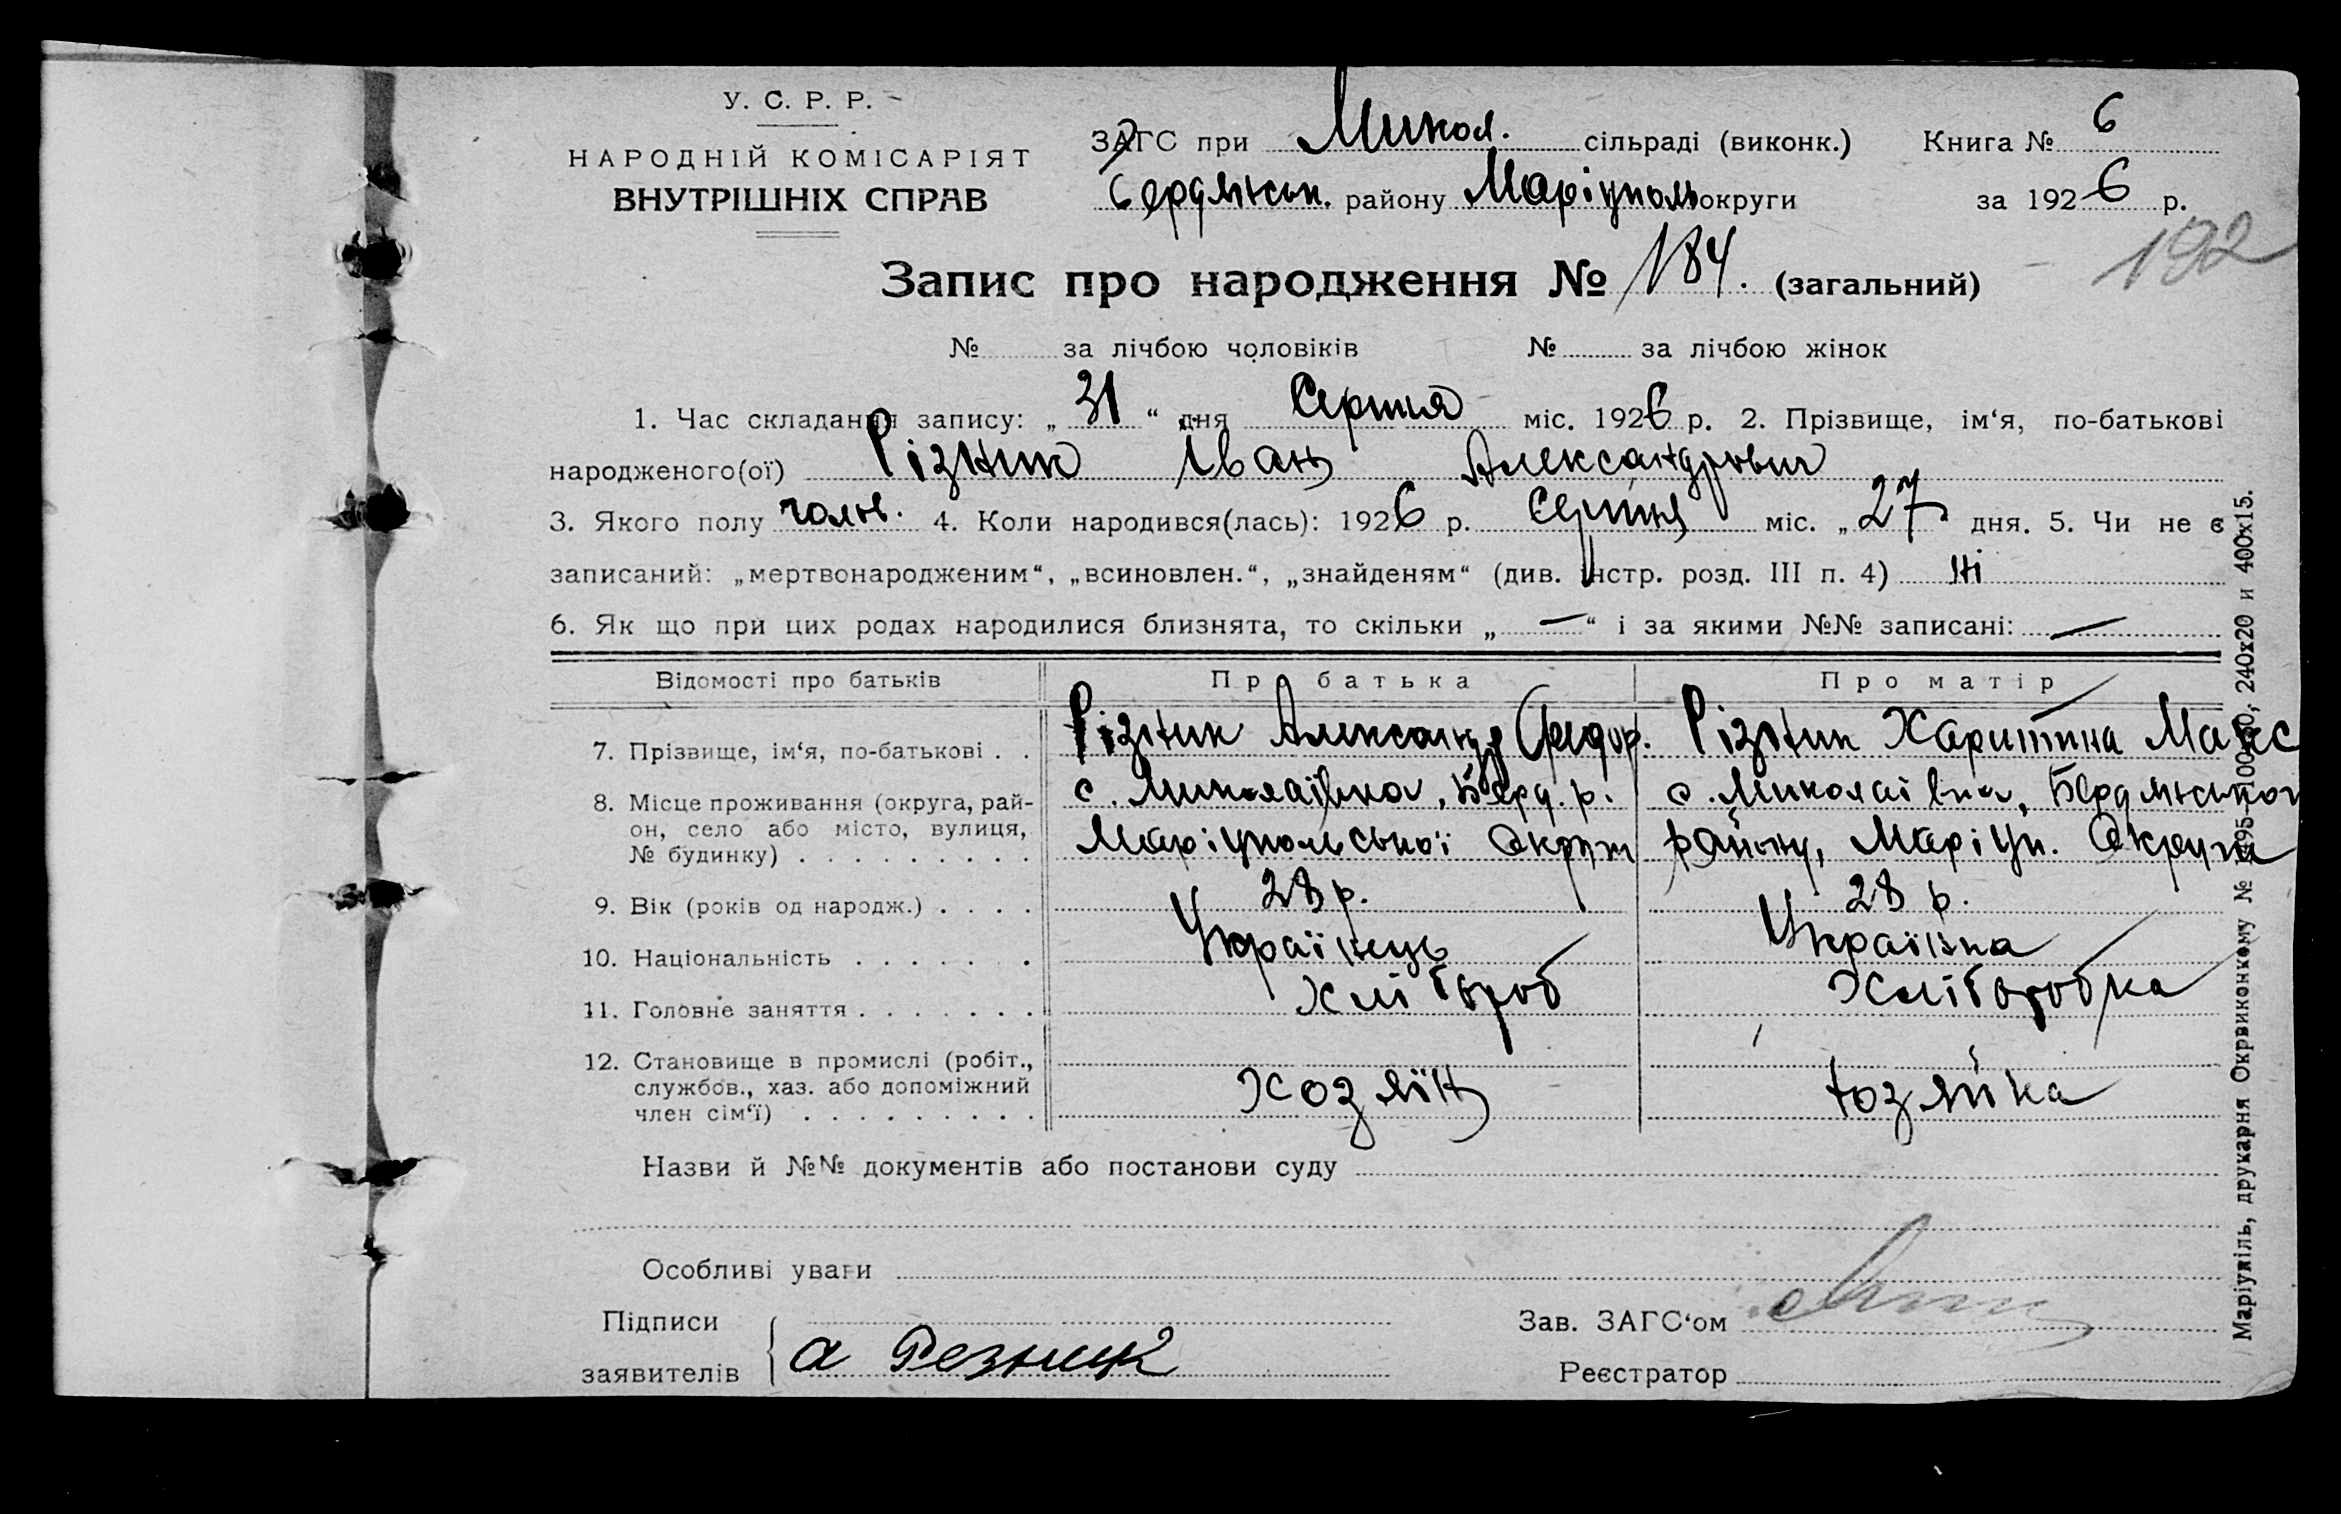 У. С. Р. Р.
НАРОДНІЙ КОМІСАРІЯТ
ВНУТРІШНІХ СПРАВ
ЗАГС при Микол. сільраді (виконк.) Книга № 6
Бердянськ. району Маріуполь округи за 1926 р.
192
Запис про народження № 184. (загальний)
№ за лічбою чоловіків № за лічбою жінок
1. Час складання запису: „ 31 “ дня Серпня міс. 1926 р. 2. Прізвище, ім‘я, по-батькові
народженого(ої) Різник Іван Александрович
3. Якого полу чолв. 4. Коли народився(лась): 1926 р. Серпня міс. „ 27 дня. 5. Чи не є
записаний: „мертвонародженим“, „всиновлен.“, „знайденям“ (див. інстр. розд. III п. 4) Ні
6. Як що при цих родах народилися близнята, то скільки „ — “ і за якими №№ записані: —
Відомості про батьків Про батька Про матір
7. Прізвище, ім‘я, по-батькові . . Різник Александр Федор. Різник Харитина Макс
8. Місце проживання (округа, рай- с. Миколаївка, Берд. р. с. Миколаївка, Бердянського
он, село або місто, вулиця,
№ будинку) . . . . . . . . . Маріупольської Округи району, Маріуп. Округи
9. Вік (років од народж.) . . . . 28 р. 28 р.
10. Національність . . . . . . . Українець Українка
11. Головне заняття . . . . . . . Хлібороб Хліборобка
12. Становище в промислі (робіт.,
службов., хаз. або допоміжний Хозяїн Хозяйка
член сім‘ї) . . . . . . . . .
Назви й №№ документів або постанови суду
Особливі уваги
Підписи Зав. ЗАГС‘ом
заявителів а Резник Реєстратор
Маріупіль, друкарня Окрвиконкому 240x20 и 400x15.